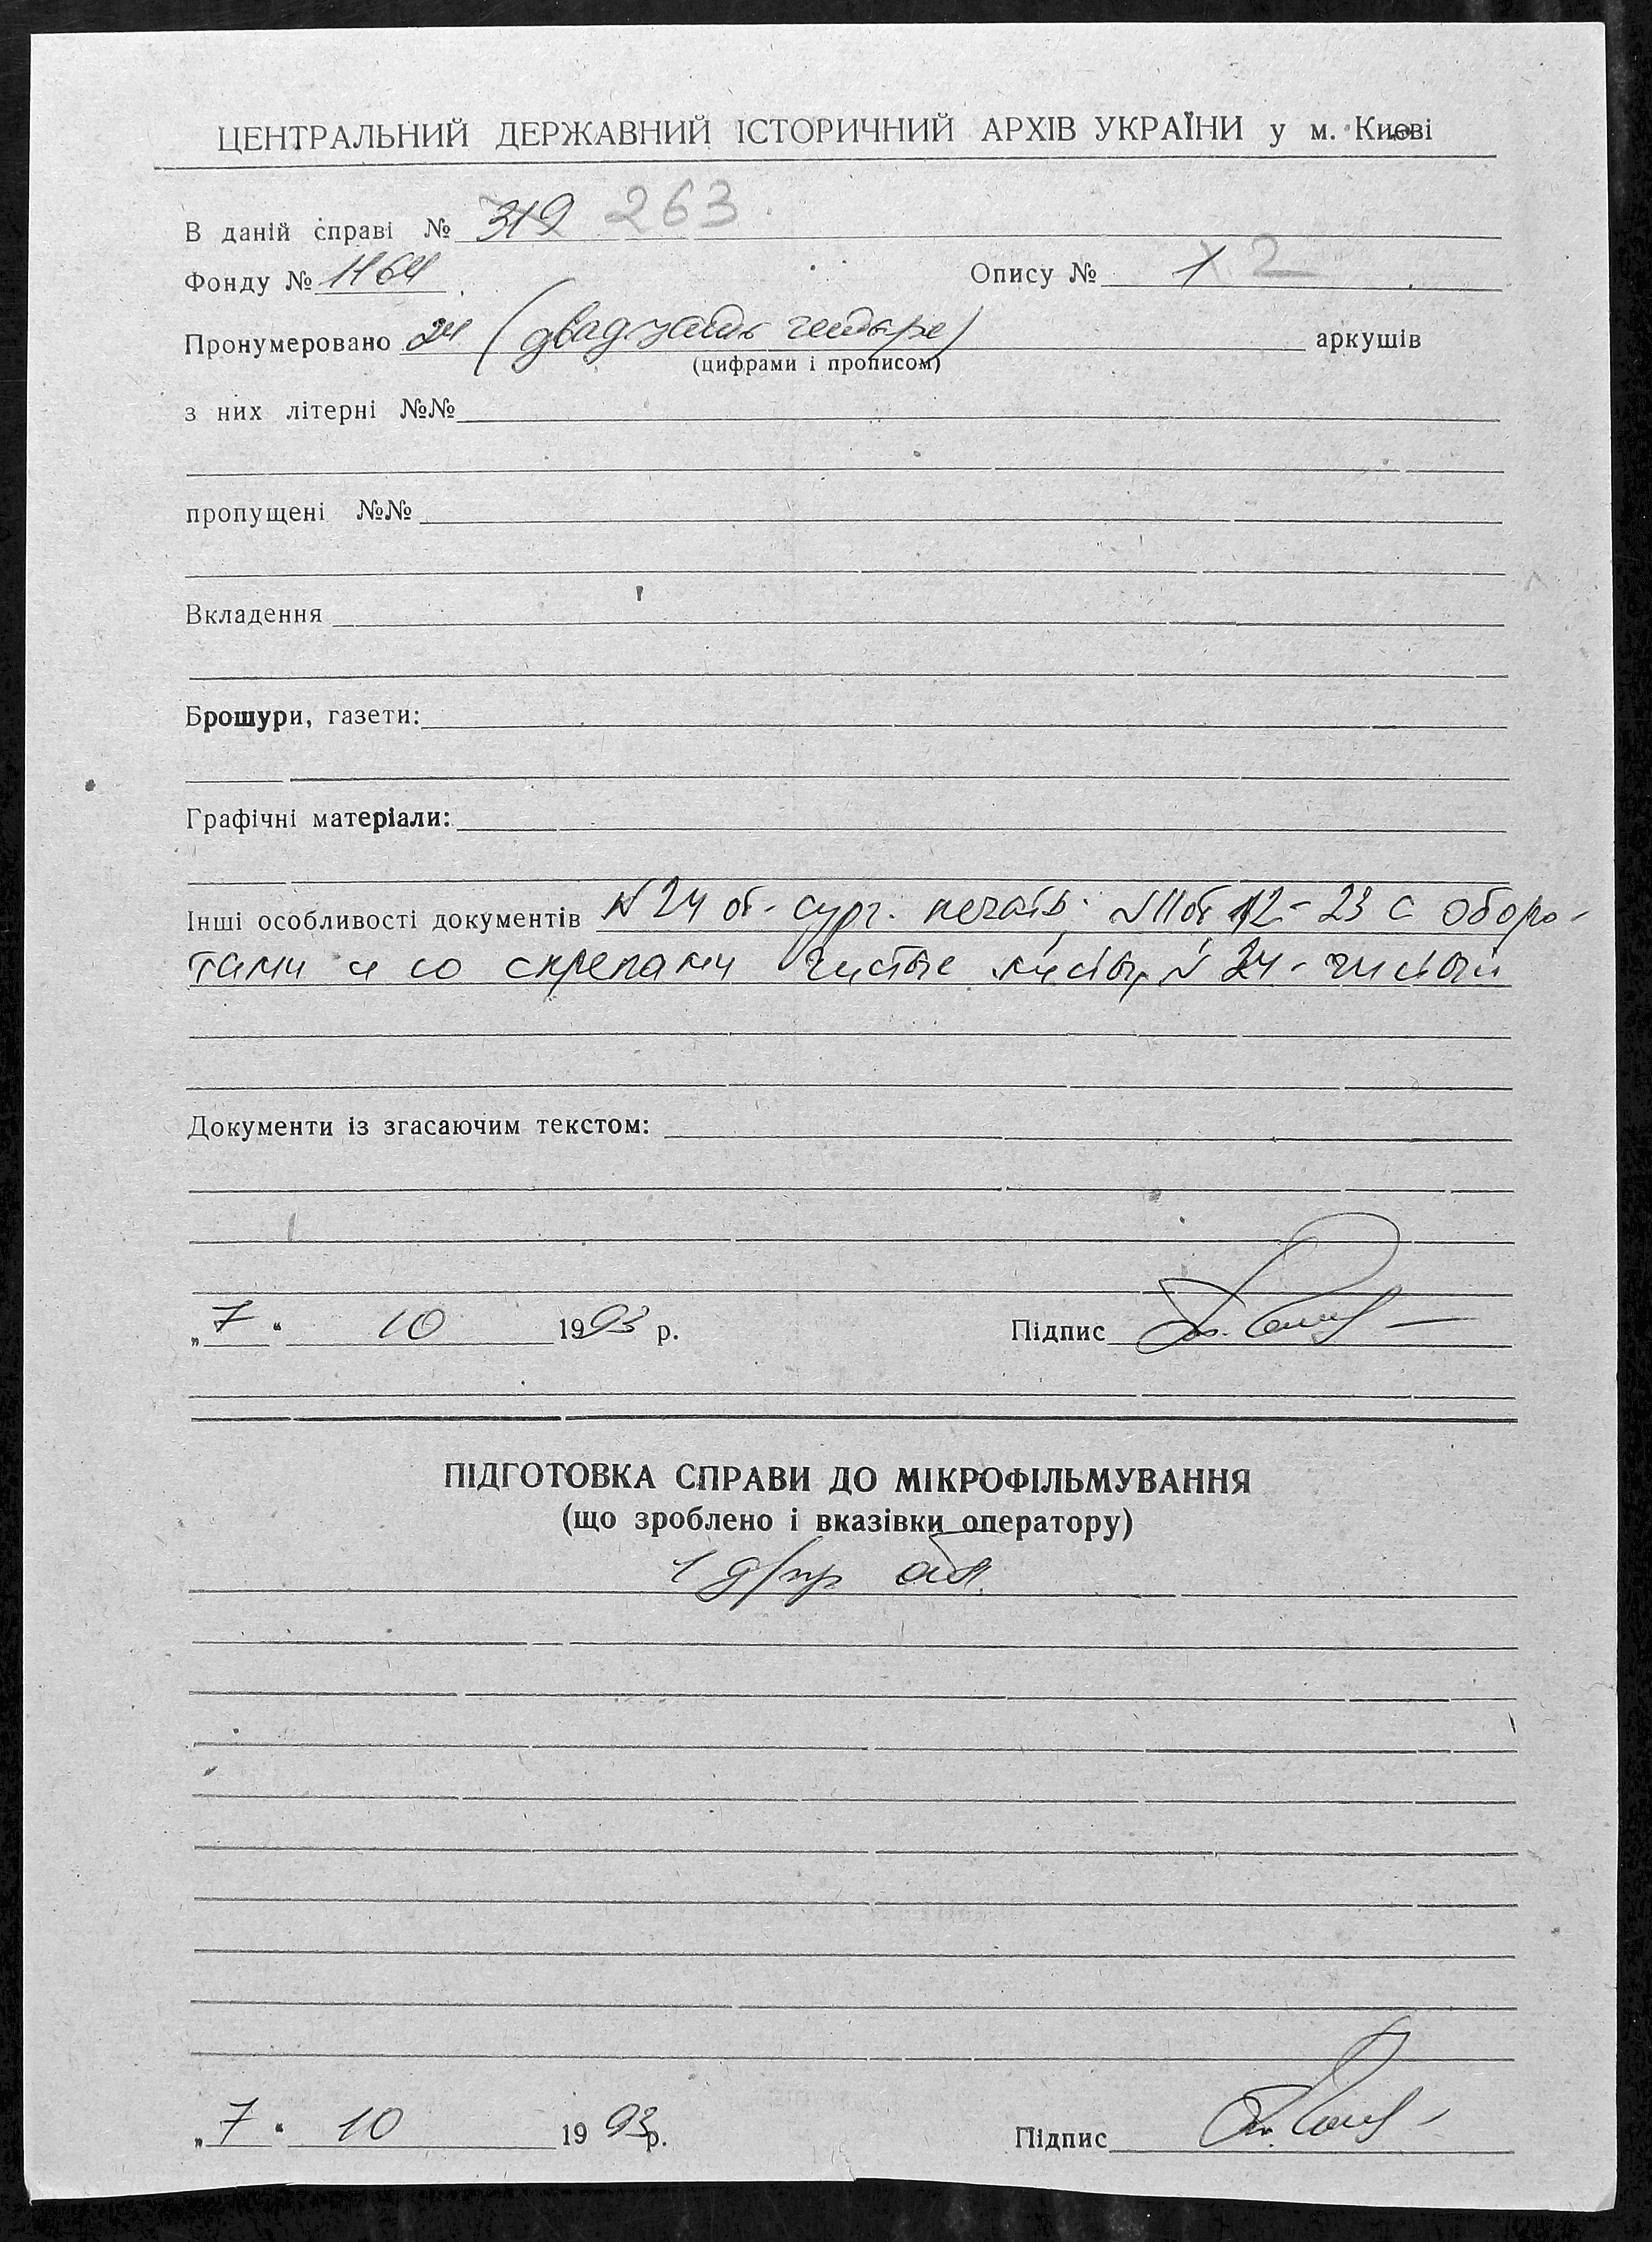 ЦЕНТРАЛЬНИЙ ДЕРЖАВНИЙ ІСТОРИЧНИЙ АРХІВ УКРАЇНИ у м. Києві
В даній справі № 319 263
Фонду № 1164 Опису № 1 2
Пронумеровано 24 (двадцать четыре) аркушів
(цифрами і прописом)
з них літерні №№
пропущені №№
Вкладення
Брошури, газети:
Графічні матеріали:
Інші особливості документів N 24 об - сург. печать; N 11 об 12 - 23 с оборо-
тами и со скрепами чистые листы, N 24 - чистый
Документи із згасаючим текстом:
„ 7 “ 10 1993 р. Підпис
ПІДГОТОВКА СПРАВИ ДО МІКРОФІЛЬМУВАННЯ
(що зроблено і вказівки оператору)
1
„ 7 “ 10 1993 р. Підпис